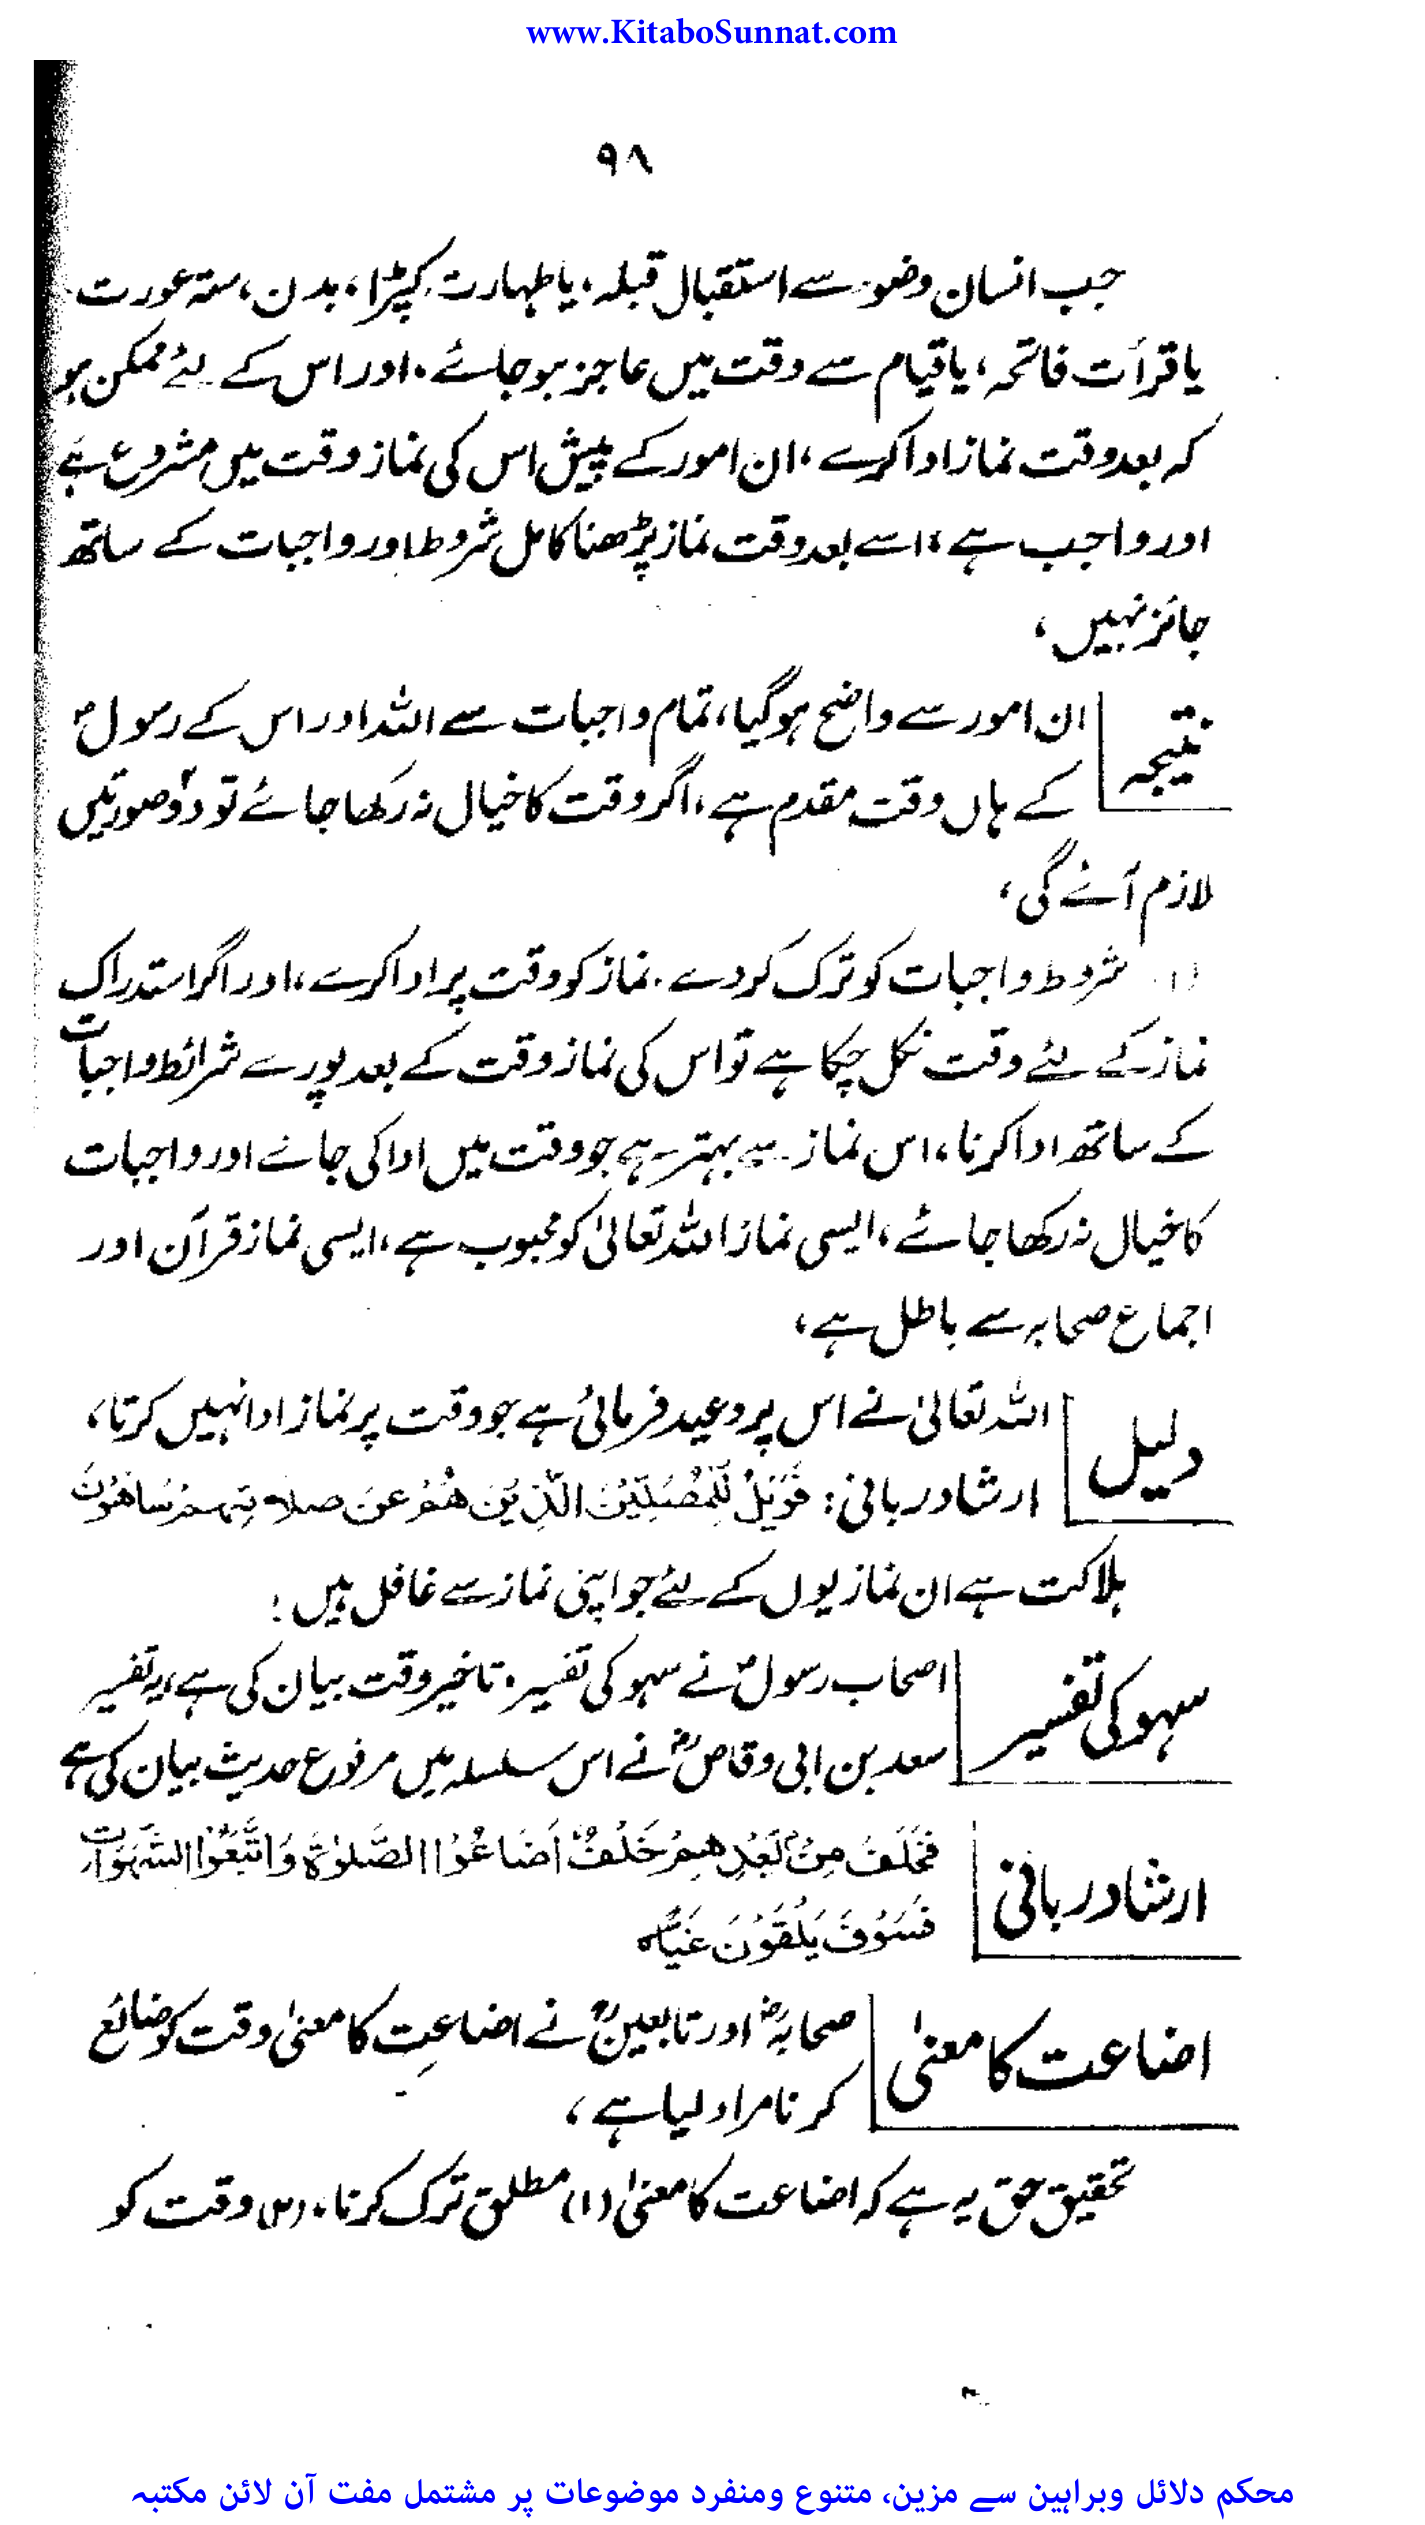 www.KitaboSunnat.com
۹۸
جب انسان وضو سے استقبال قبلہ، یا طہارت کپڑا، بدن، ستر عورت
یا قرأت فاتحہ، یا قیام سے وقت میں عاجز ہو جائے. اور اس کے لئے ممکن ہو
کہ بعد وقت نماز ادا کرے، ان امور کے پیش اس کی نماز وقت میں مشروع ہے
اور واجب ہے، اسے بعد وقت نماز پڑھنا کامل شروط اور واجبات کے ساتھ
جائز نہیں،
نتیجہ
ان امور سے واضح ہو گیا، تمام واجبات سے اللہ اور اس کے رسولؐ
کے ہاں وقت مقدم ہے، اگر وقت کا خیال نہ رکھا جائے تو دو صورتیں
لازم آئے گی،
(۱) شروط واجبات کو ترک کر دے. نماز کو وقت پر ادا کرے، اور اگر استدراک
نماز کے لئے وقت نکل چکا ہے تو اس کی نماز وقت کے بعد پورے شرائط واجبات
کے ساتھ ادا کرنا، اس نماز سے بہتر ہے جو وقت میں ادا کی جائے اور واجبات
کا خیال نہ رکھا جائے، ایسی نماز اللہ تعالیٰ کو محبوب ہے، ایسی نماز قرآن اور
اجماع صحابہ سے باطل ہے،
دلیل
اللہ تعالیٰ نے اس پر وعید فرمائی ہے جو وقت پر نماز ادا نہیں کرتا،
ارشاد ربانی: فَوَيْلٌ لِّلْمُصَلِّيْنَ الَّذِيْنَ هُمْ عَنْ صلاتِهِمْ سَاهُوْنَ
ہلاکت ہے ان نمازیوں کے لئے جو اپنی نماز سے غافل ہیں:
سہو کی تفسیر
اصحاب رسولؐ نے سہو کی تفسیر. تاخیر وقت بیان کی ہے، یہ تفسیر
سعد بن ابی وقاصؓ نے اس سلسلہ میں مرفوع حدیث بیان کی ہے
ارشاد ربانی
فَخَلَفَ مِنْۢ بَعْدِهِمْ خَلْفٌ اَضَاعُوا الصَّلٰوةَ وَاتَّبَعُوا الشَّهَوَاتِ
فَسَوْفَ يَلْقَوْنَ غَيًّاه
اضاعت کا معنیٰ
صحابہؓ اور تابعینؒ نے اضاعت کا معنیٰ وقت کو ضائع
کرنا مراد لیا ہے،
تحقیق حق یہ ہے کہ اضاعت کا معنیٰ (۱) مطلق ترک کرنا. (۲) وقت کو
محکم دلائل وبراہین سے مزین، متنوع ومنفرد موضوعات پر مشتمل مفت آن لائن مکتبہ